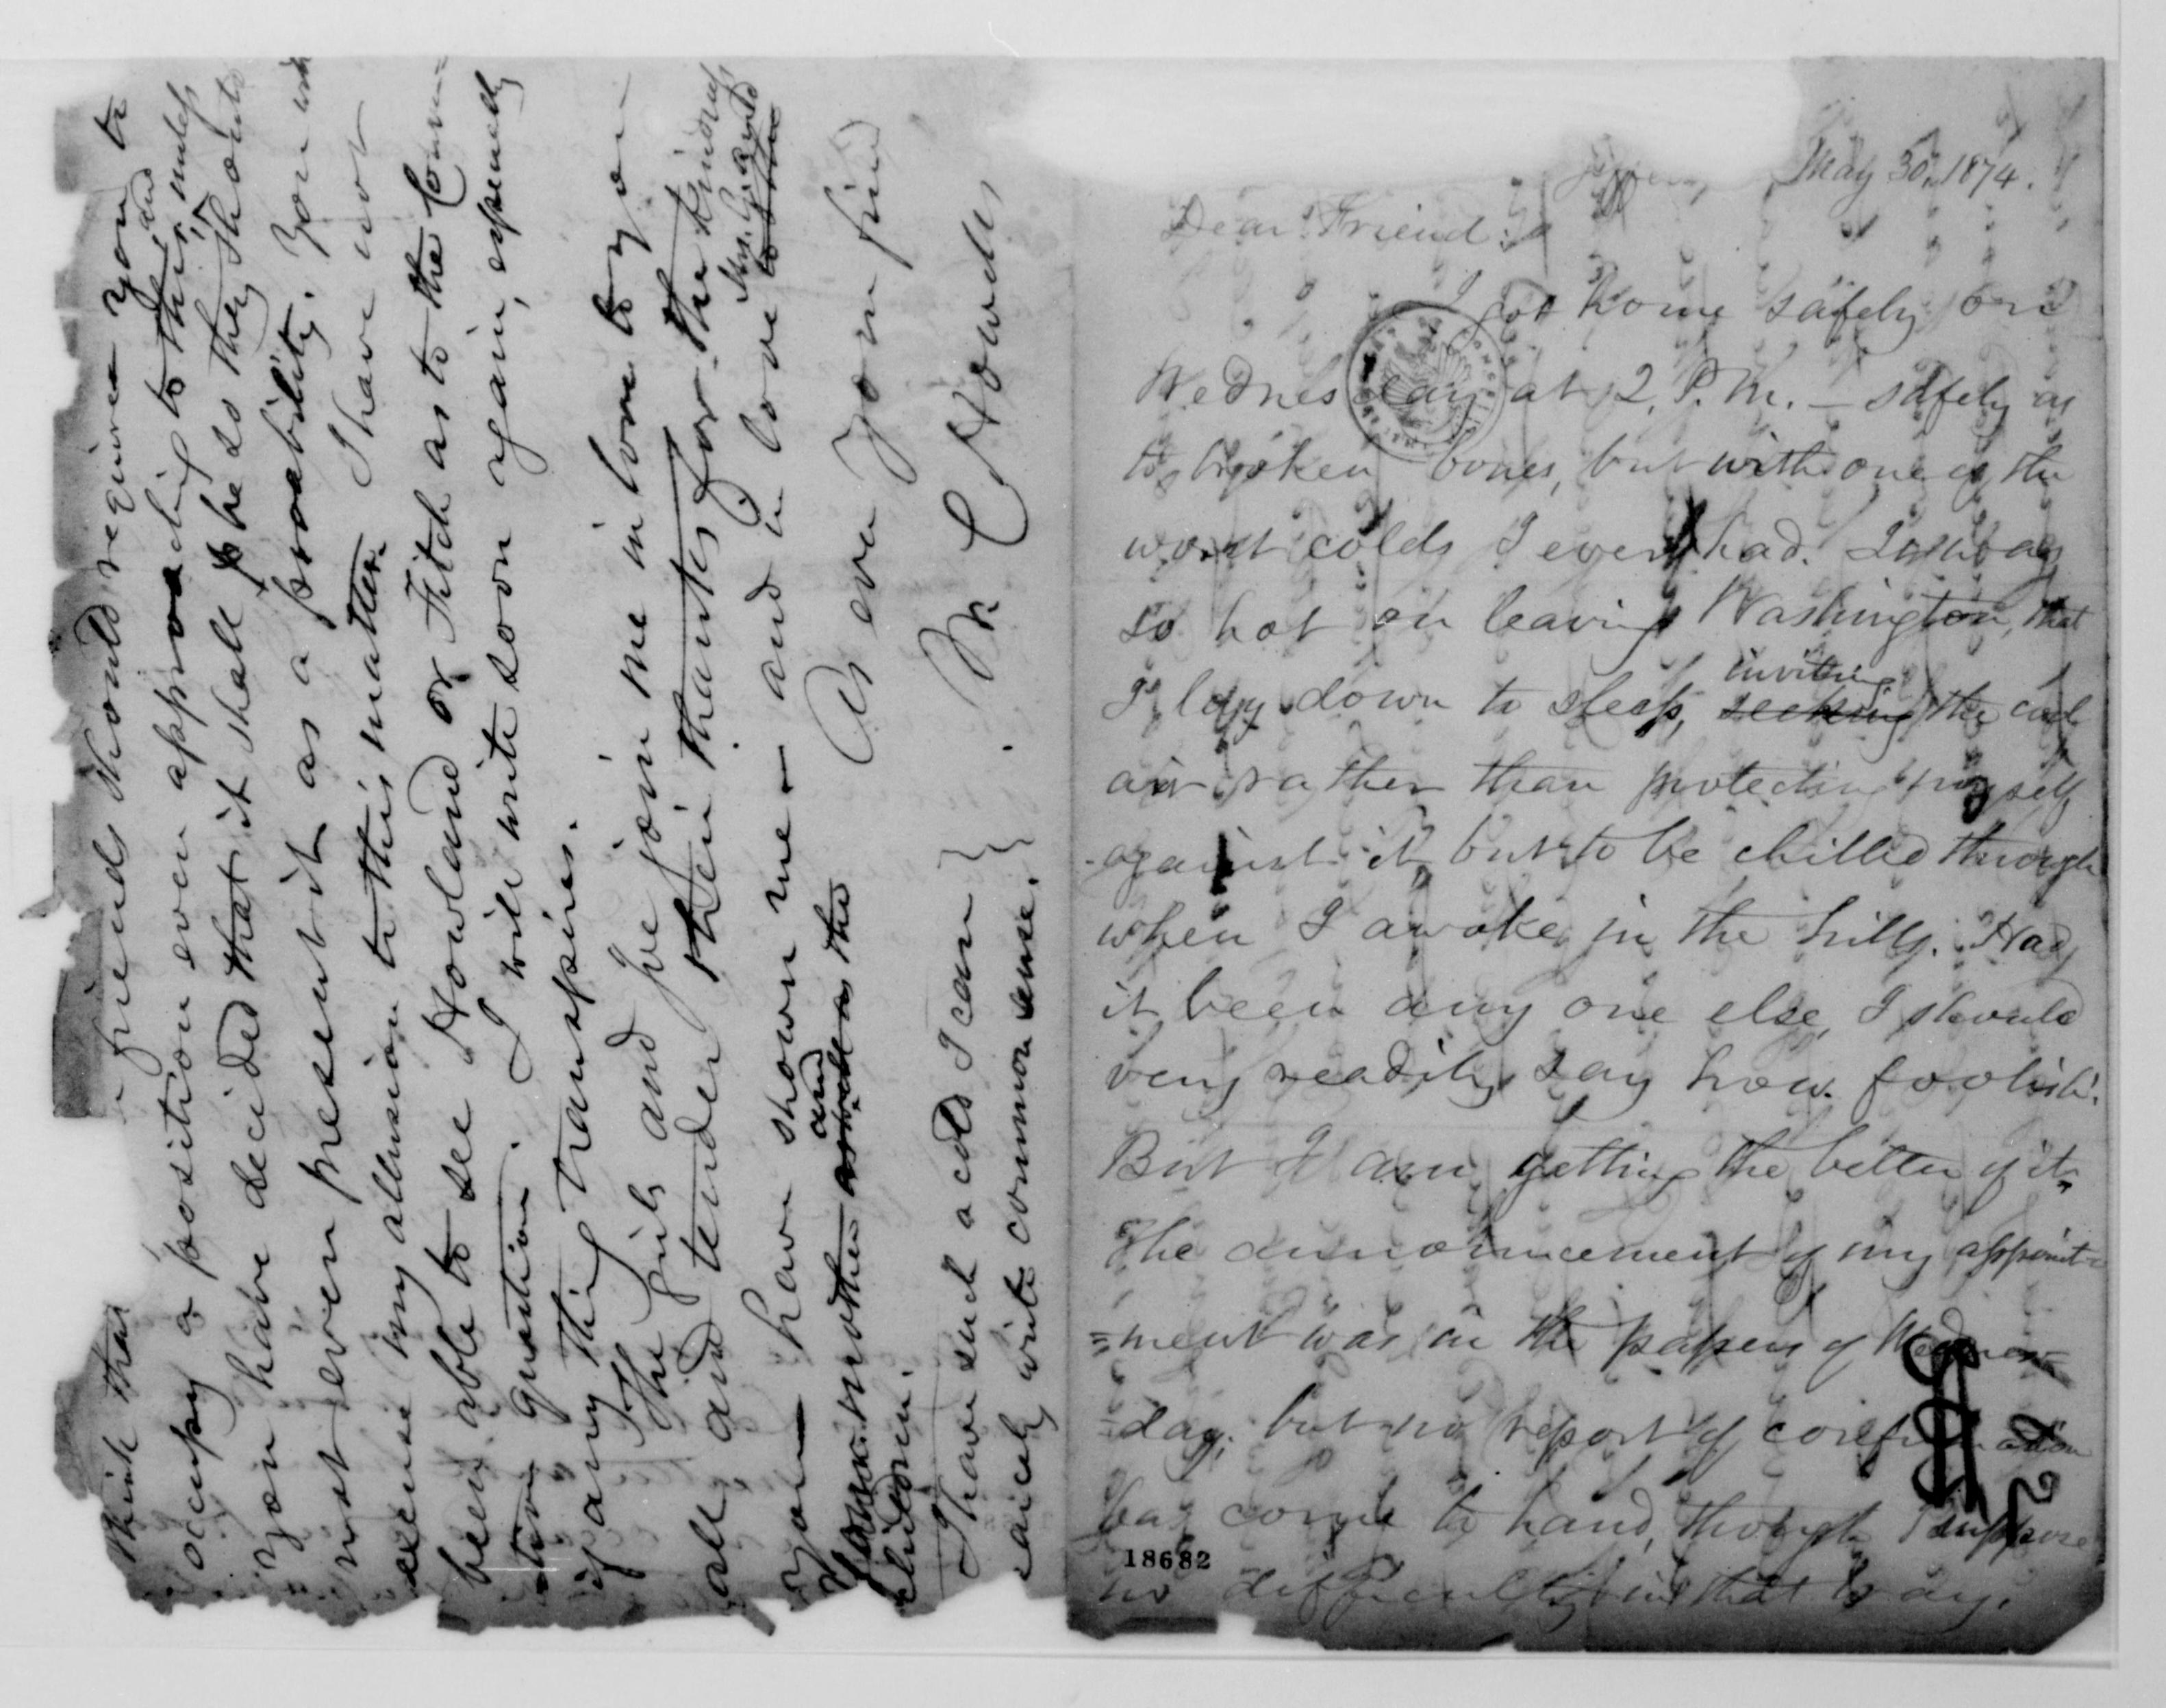 May 30, 1874.
Dear Friend:
I got home safely on
Wednesday at 2. P.M. – safely as
to broken bones, but with one of the
worst colds I ever had. It was
so hot on leaving Washington, that
I lay down to sleep, inviting seeking the cool
air rather than protecting myself
against it, but to be chilled through
when I awoke in the hills. Had
it been any one else, I should
very readily say how foolish!
But I am getting the better of it.
The announcement of my appoint=
=ment was in the papers of Wednes=
=day, but no report of confirmation
has come to hand, though I suppose
no difficulty in that way.
18682
think that friends should require you to
occupy a position even approaching to this, and unless
you have decided that it shall be so they should
not even present it as a probability. You will
excuse my allusion to this matter. I have not
been able to see Howland or Fitch as to the Connec
tion question. I will write soon again, especially
if any thing transpires.
The girls and Joe join me in love to you
all, and tender their thanks for the kindness
you have shown me – and in love to Mrs. Grant's
mother as well as the and
children.
As ever Your friend
M. C Howells
I have such a cold I can
carcely write common sense.